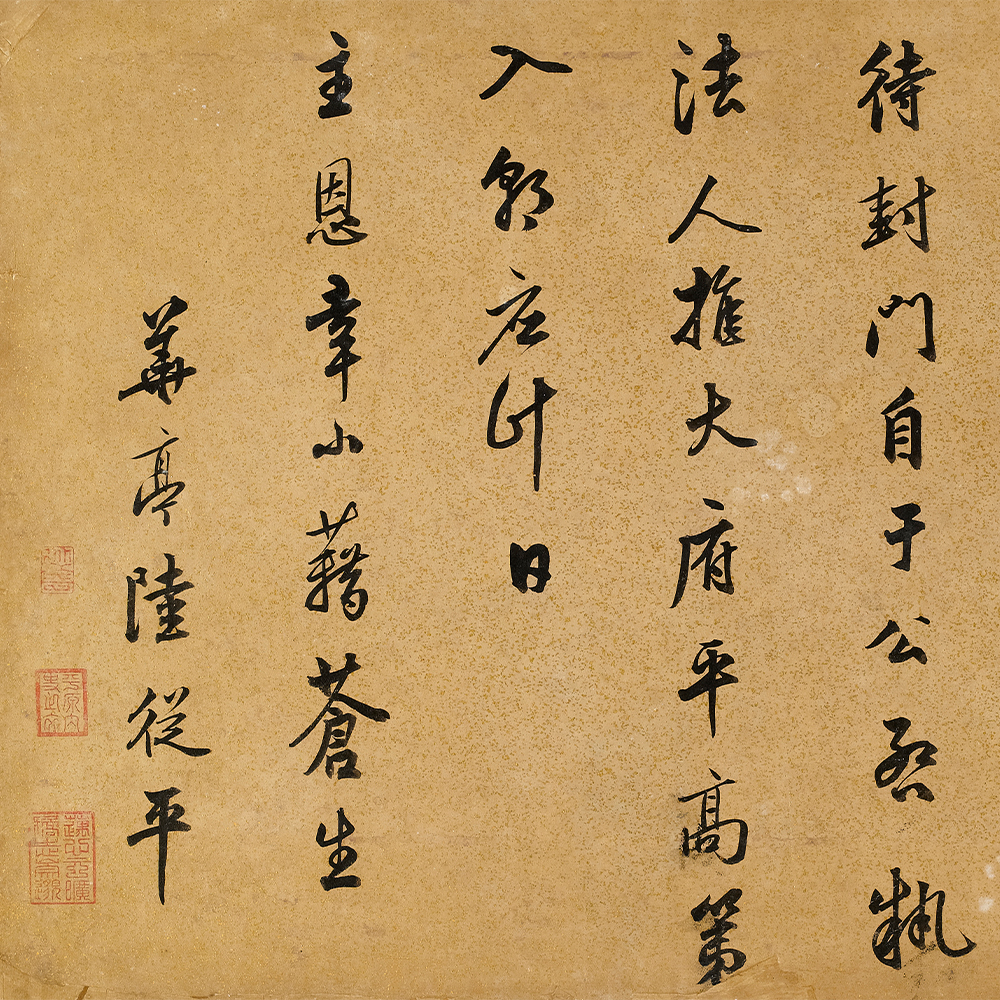 待封門自于公執
法人推大府平高第
入應計日
主恩小藉蒼生
華亭陸從平